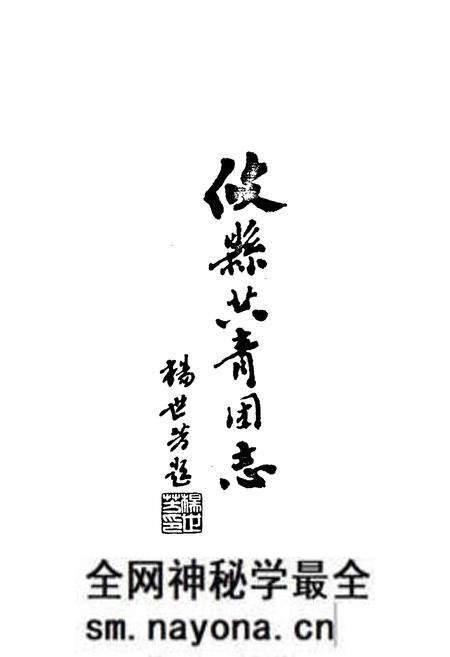 攸縣共青团志
楊世芳題
楊世芳印
全网神秘学最全
sm.nayona.cn